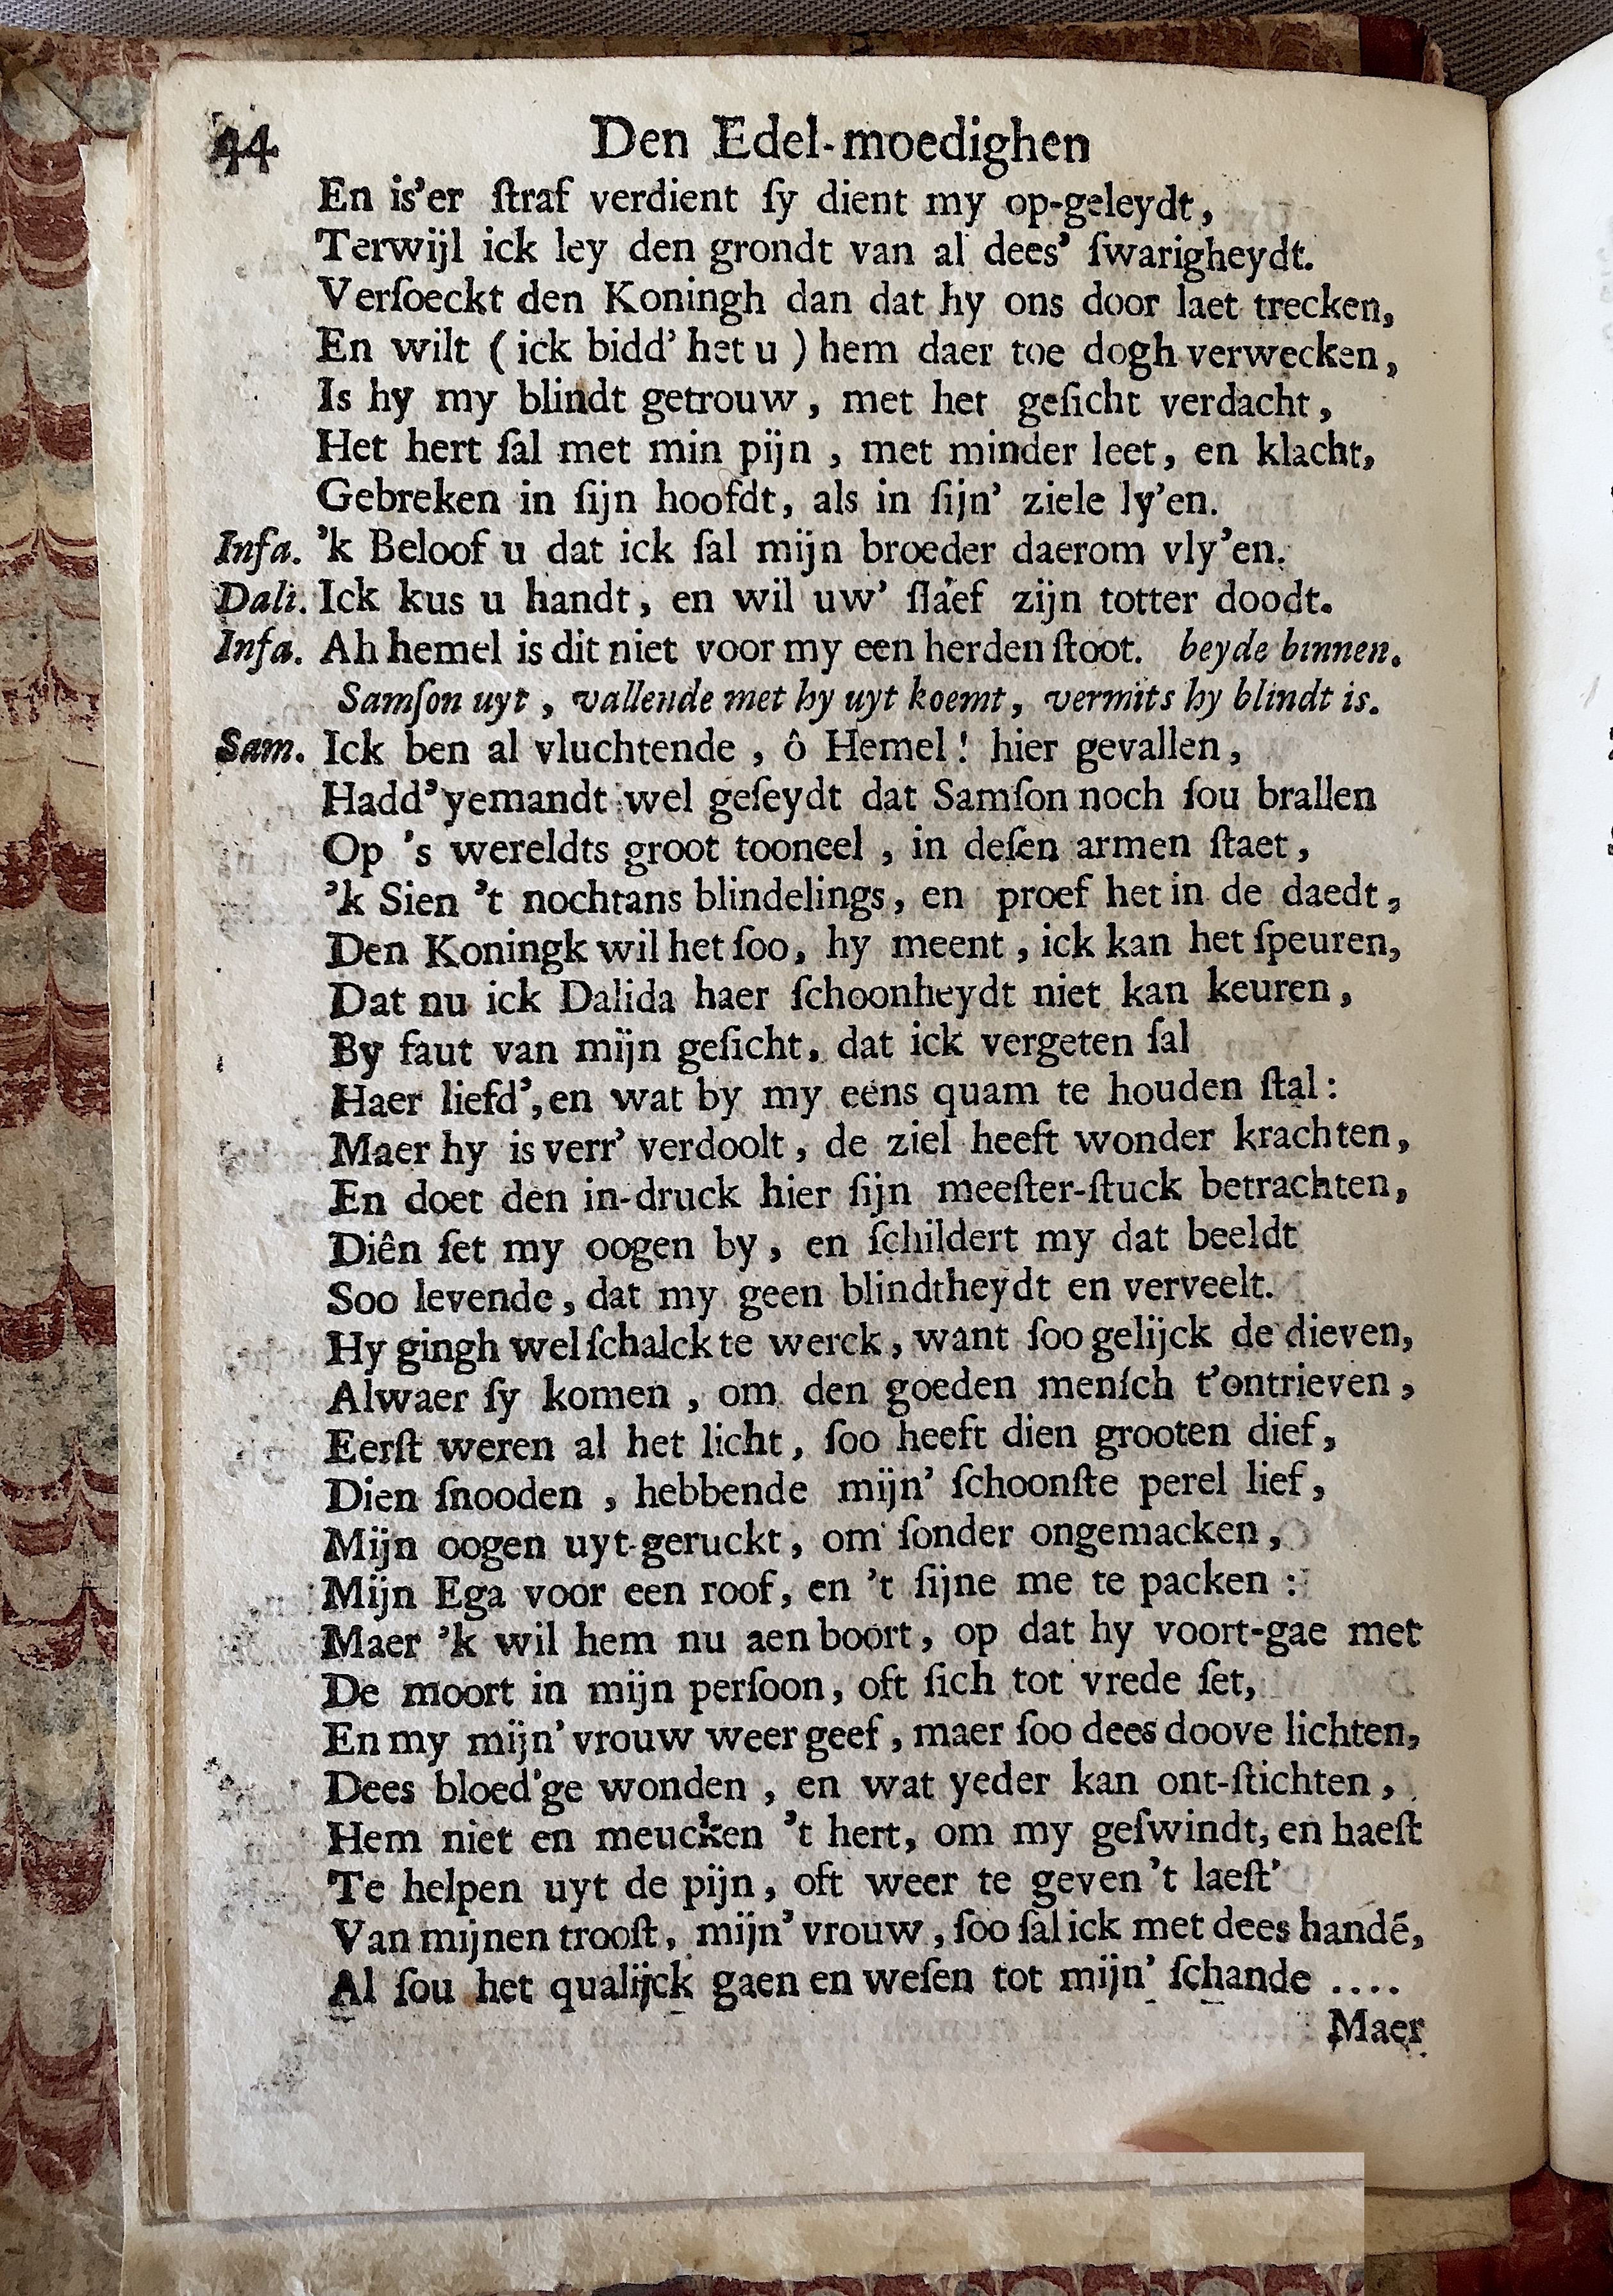 44 Den Edel-moedighen
En is'er ſtraf verdient ſy dient my op-geleydt,
Terwijl ick ley den grondt van al dees' ſwarigheydt.
Verſoeckt den Koningh dan dat hy ons door laet trecken,
En wilt ( ick bidd' het u ) hem daer toe dogh verwecken,
Is hy my blindt getrouw, met het geſicht verdacht,
Het hert ſal met min pijn, met minder leet, en klacht,
Gebreken in ſijn hoofdt, als in ſijn' ziele ly'en.
Infa. 'k Beloof u dat ick ſal mijn broeder daerom vly'en.
Dali. Ick kus u handt, en wil uw' ſlaef zijn totter doodt.
Infa. Ah hemel is dit niet voor my een herden ſtoot. beyde binnen.
Samſon uyt, vallende met hy uyt koemt, vermits hy blindt is.
Sam. Ick ben al vluchtende, ô Hemel! hier gevallen,
Hadd' yemandt wel geſeydt dat Samſon noch ſou brallen
Op 's wereldts groot tooneel, in deſen armen ſtaet,
'k Sien 't nochtans blindelings, en proef het in de daedt,
Den Koningk wil het ſoo, hy meent, ick kan het ſpeuren,
Dat nu ick Dalida haer ſchoonheydt niet kan keuren,
By faut van mijn geſicht, dat ick vergeten ſal
Haer liefd', en wat by my eens quam te houden ſtal:
Maer hy is verr' verdoolt, de ziel heeft wonder krachten,
En doet den in-druck hier ſijn meeſter-ſtuck betrachten,
Diên ſet my oogen by, en ſchildert my dat beeldt
Soo levende, dat my geen blindtheydt en verveelt.
Hy gingh wel ſchalck te werck, want ſoo gelijck de dieven,
Alwaer ſy komen, om den goeden menſch t'ontrieven,
Eerſt weren al het licht, ſoo heeft dien grooten dief,
Dien ſnooden, hebbende mijn' ſchoonſte perel lief,
Mijn oogen uyt-geruckt, om ſonder ongemacken,
Mijn Ega voor een roof, en 't ſijne me te packen :
Maer 'k wil hem nu aen boort, op dat hy voort-gae met
De moort in mijn perſoon, oft ſich tot vrede ſet,
En my mijn' vrouw weer geef, maer ſoo dees doove lichten,
Dees bloed'ge wonden, en wat yeder kan ont-ſtichten,
Hem niet en meucken 't hert, om my geſwindt, en haeſt
Te helpen uyt de pijn, oft weer te geven 't laeſt'
Van mijnen trooſt, mijn' vrouw, ſoo ſal ick met dees handẽ,
Al ſou het qualijck gaen en weſen tot mijn' ſchande ....
Maer